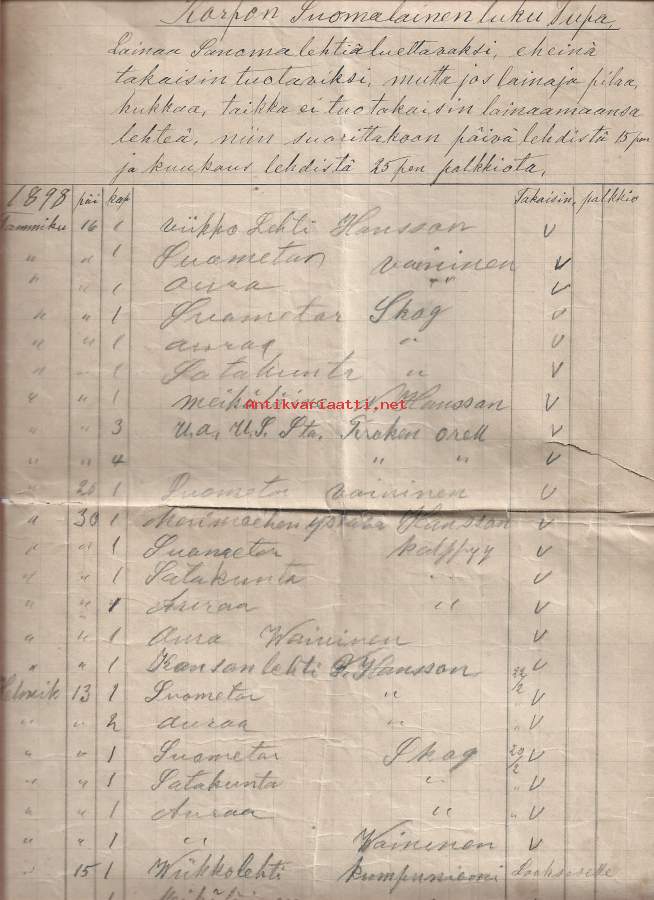 Korpon Suomalainen luku Tupa,
Lainaa Sanomalehtiä luettavaksi, eheinä
takaisin tuotaviksi, mutta jos lainaja pilaa,
hukkaa, taikka ei tuo takaisin lainaamaansa
lehteä, niin suorittakoon päivä lehdistä 15 pen
ja kuukaus lehdistä 25 pen palkkiota,
1898 päi kap Takaisin, palkkio
Tammiku 16 1 viikko Lehti Hansson V
" " 1 Suometar vaininen V
" " 1 aura " V
" " 1 Suometar Skog V
" " 1 auraa " V
" " 1 Satakunta " V
" " 1 Hansson V
" " 3 U.a, U.S. Sta. V
" " 4 " " V
" 20 1 Suometar vaininen V
" 30 1 Hansson V
" " 1 Suometar kalppyy V
" " 1 Satakunta " V
" " 1 Auraa " V
" " 1 Aura Waininen V
" " 1 Kansanlehti Hansson 22/2 V
Helmik 13 1 Suometar " V
" " 2 auraa " " V
" " 1 Suometar Skog 20/2 V
" " 1 Satakunta " " V
" " 1 Auraa " " V
" " 1 " Waininen V
" 15 1 Wiikkolehti
Antikvariaatti.net